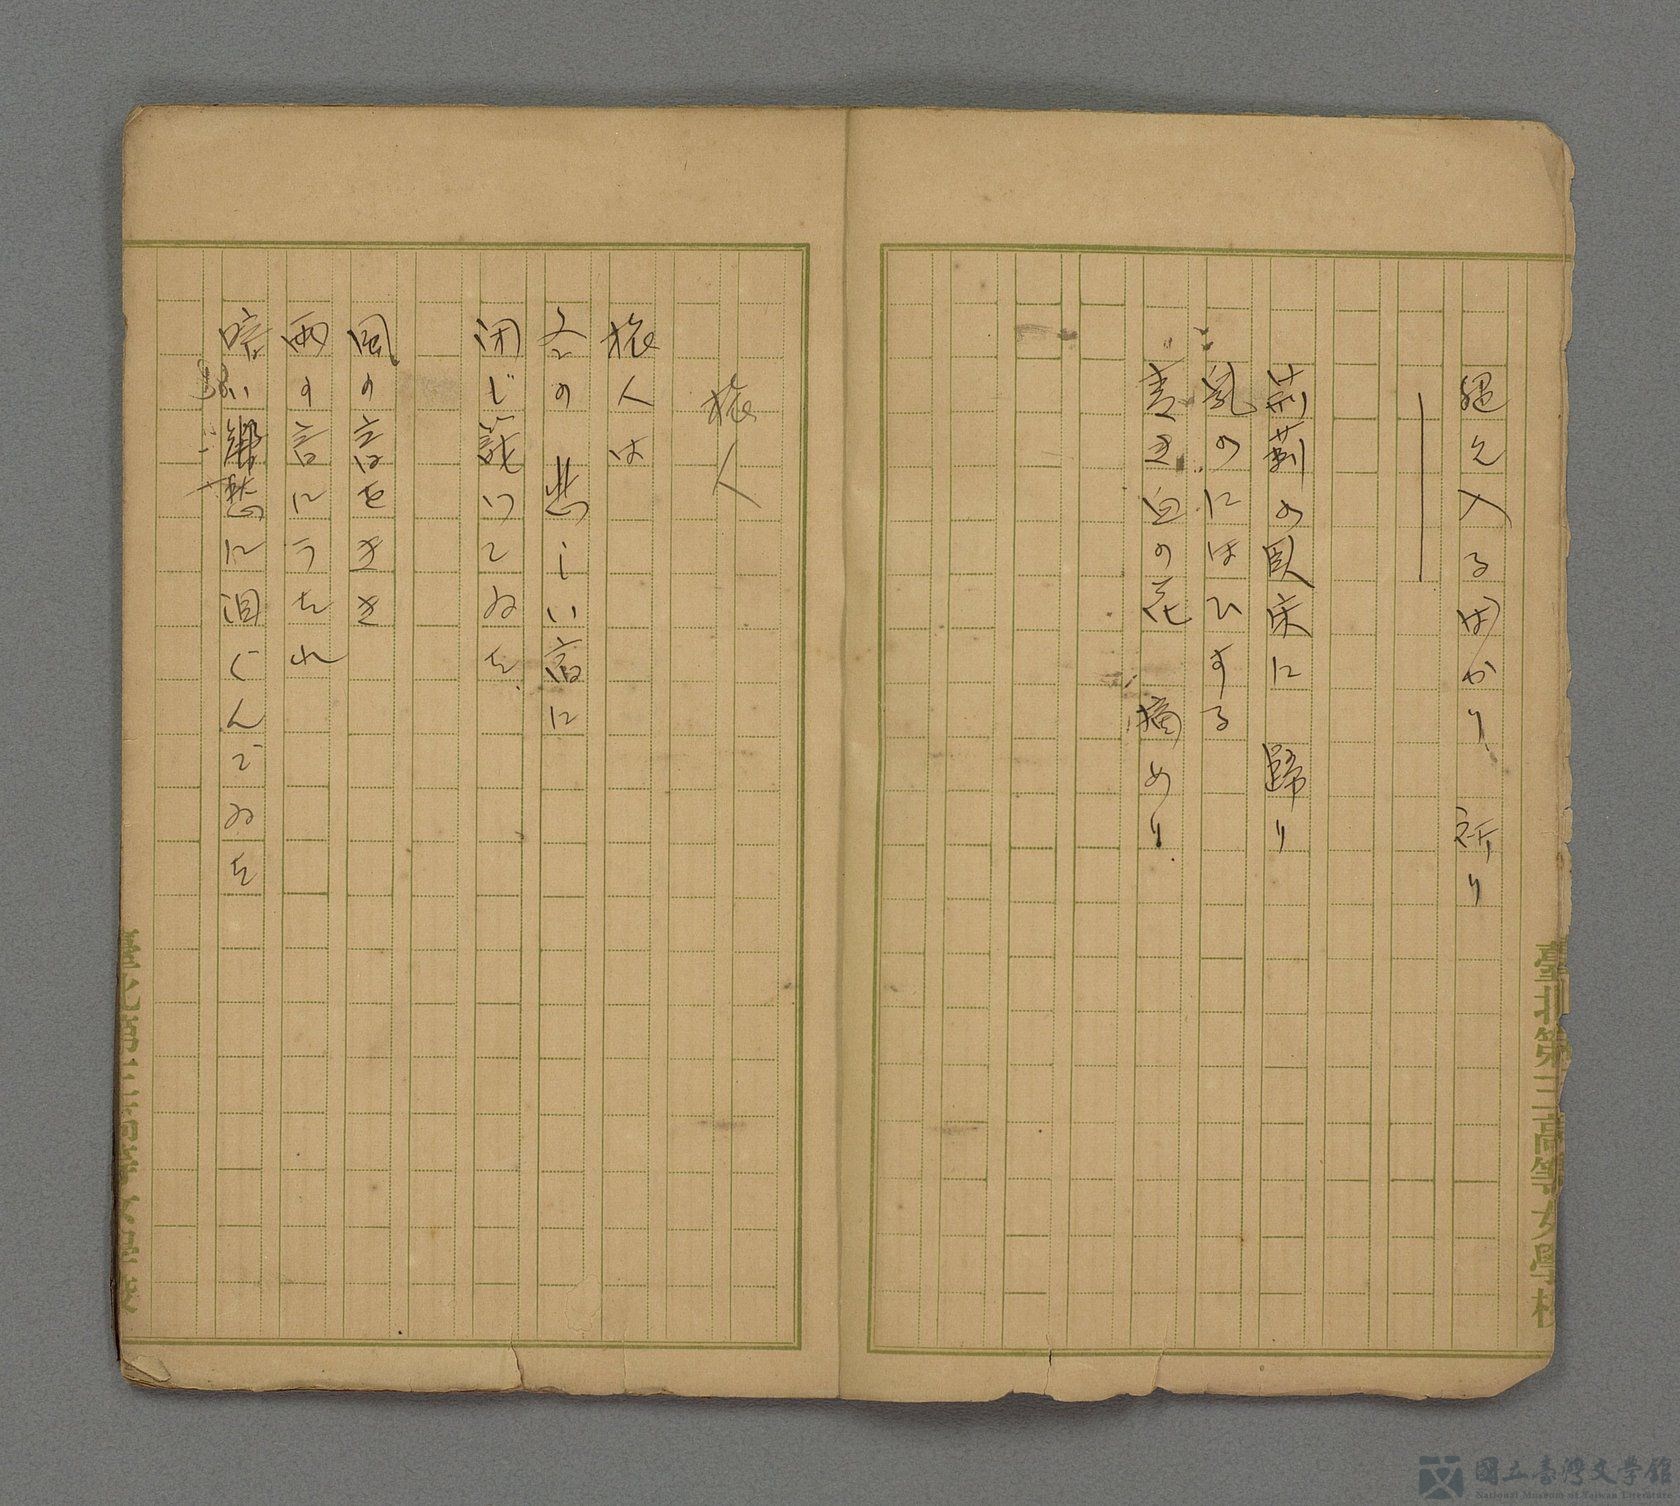 絶え入るばかり 祈り
荊蕀の臥床に 歸り
乳のにほひする
青き白の花 摘めり
臺北第三高等女學校
旅人
旅人は
冬の 悲しい宿に
閉じ籠ってゐた
風の音をきき
雨の音にうたれ
暗い鄕愁に 泪ぐんでゐた
臺北第三高等女學校
國立臺灣文學館
National Museum of Taiwan Literature